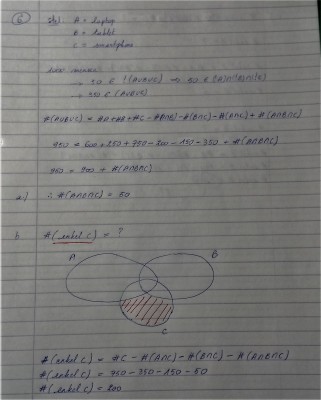 6 stel A = laptop
B = tablet
C = smartphone
→ 50 ∉ (A∪B∪C)
→ 950 ∈ (A∪B∪C)
#(A∪B∪C) = #A + #B + #C - #(A∩B) - #(B∩C) - #(A∩C) + #(A∩B∩C)
950 = 600 + 250 + 750 - 200 - 150 - 350 + #(A∩B∩C)
950 = 900 + #(A∩B∩C)
a) ∴ #(A∩B∩C) = 50
b #(enkel C) = ?
A
B
C
#(enkel C) = #C - #(A∩C) - #(B∩C) - #(A∩B∩C)
#(enkel C) = 750 - 350 - 150 - 50
#(enkel C) = 200